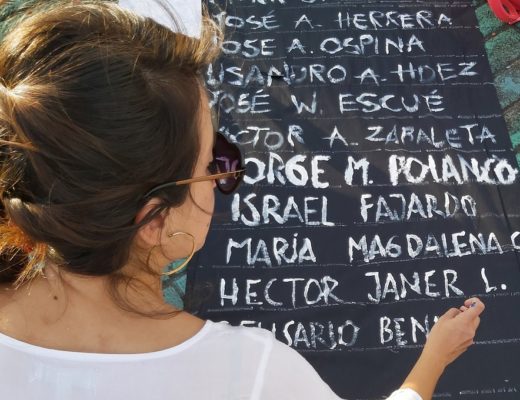 JOSÉ A. HERRERA
JOSE A. OSPINA
LISANDRO A. HDEZ
JOSÉ W. ESCUÉ
VICTOR A. ZABALETA
JORGE M. POLANCO
ISRAEL FAJARDO
MARÍA MAGDALENA C
HECTOR JANER L.